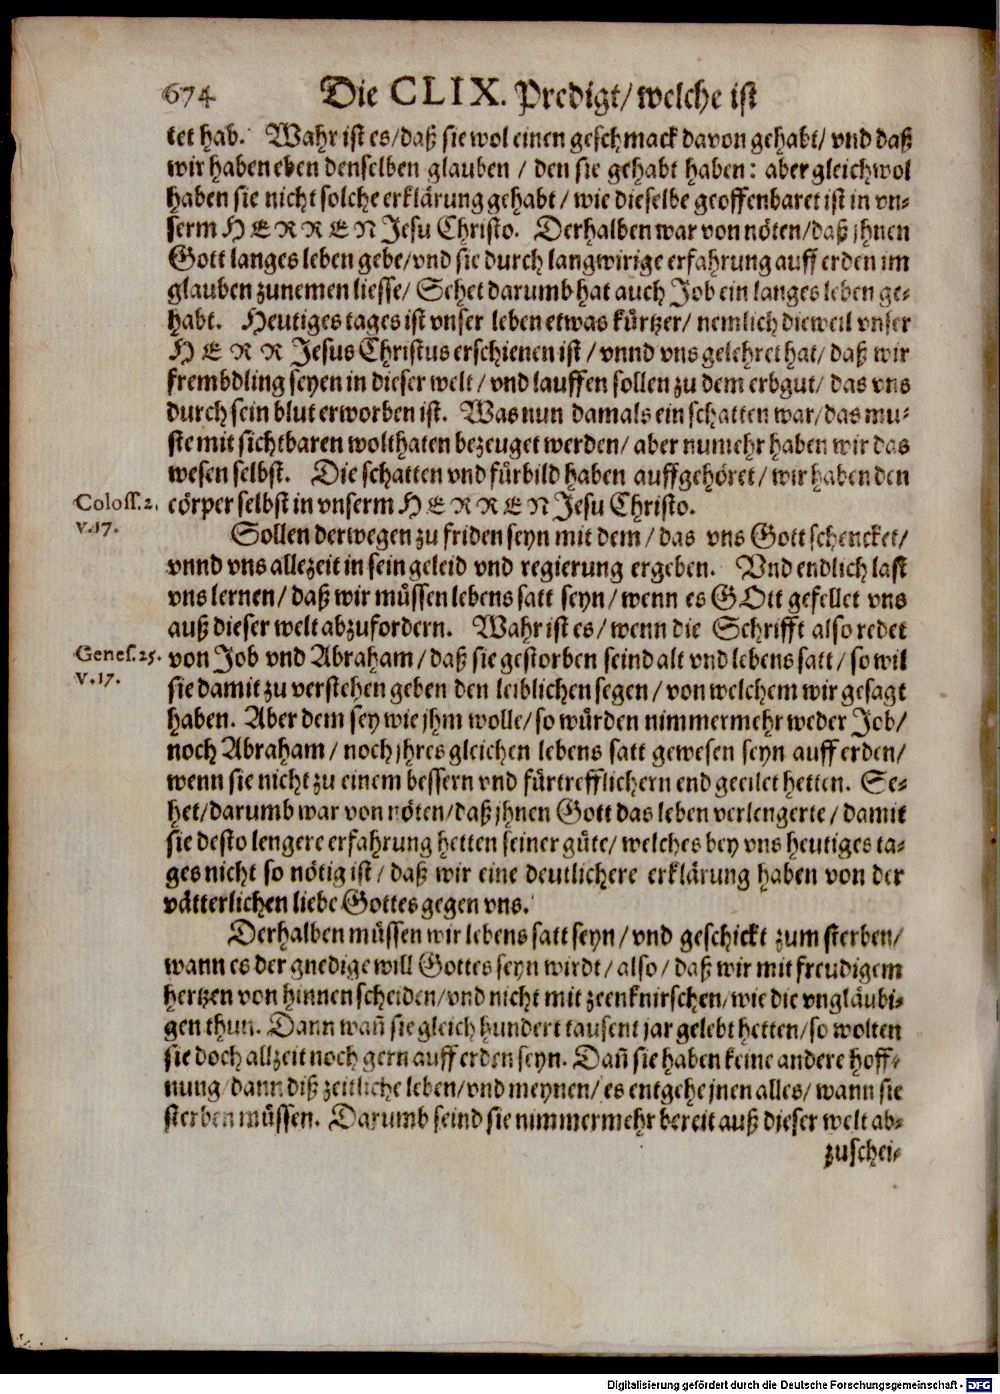 674 Die CLIX. Predigt/ welche ist
tet hab. Wahr ist es/ daß sie wol einen geschmack davon gehabt/ vnd daß
wir haben eben denselben glauben / den sie gehabt haben: aber gleichwol
haben sie nicht solche erklärung gehabt / wie dieselbe geoffenbaret ist in vn-
serm HERREN Jesu Christo. Derhalben war von nöten/ daß jhnen
Gott langes leben gebe/ vnd sie durch langwirige erfahrung auff erden im
glauben zunemen liesse/ Sehet darumb hat auch Job ein langes leben ge-
habt. Heutiges tages ist vnser leben etwas kürtzer/ nemlich dieweil vnser
HERR Jesus Christus erschienen ist / vnnd vns gelehret hat/ daß wir
frembdling seyen in dieser welt / vnd lauffen sollen zu dem erbgut/ das vns
durch sein blut erworben ist. Was nun damals ein schatten war/ das mu-
ste mit sichtbaren wolthaten bezeuget werden/ aber numehr haben wir das
wesen selbst. Die schatten vnd fürbild haben auffgehöret / wir haben den
Coloss. 2. cörper selbst in vnserm HERREN Jesu Christo.
v. 17.
Sollen derwegen zu friden seyn mit dem / das vns Gott schencket/
vnnd vns allezeit in sein geleid vnd regierung ergeben. Vnd endlich last
vns lernen / daß wir müssen lebens satt seyn / wenn es GOtt gefellet vns
auß dieser welt abzufordern. Wahr ist es / wenn die Schrifft also redet
Genes. 25. von Job vnd Abraham / daß sie gestorben seind alt vnd lebens satt / so wil
v. 17.
sie damit zu verstehen geben den leiblichen segen / von welchem wir gesagt
haben. Aber dem sey wie jhm wolle / so würden nimmermehr weder Job/
noch Abraham / noch jhres gleichen lebens satt gewesen seyn auff erden/
wenn sie nicht zu einem bessern vnd fürtrefflichern end geeilet hetten. Se-
het/ darumb war von nöten/ daß jhnen Gott das leben verlengerte / damit
sie desto lengere erfahrung hetten seiner güte/ welches bey vns heutiges ta-
ges nicht so nötig ist / daß wir eine deutlichere erklärung haben von der
vätterlichen liebe Gottes gegen vns.
Derhalben müssen wir lebens satt seyn / vnd geschickt zum sterben/
wann es der gnedige will Gottes seyn wirdt / also / daß wir mit freudigem
hertzen von hinnen scheiden/ vnd nicht mit zeenknirschen/ wie die vngläubi-
gen thun. Dann wañ sie gleich hundert tausent jar gelebt hetten/ so wolten
sie doch allzeit noch gern auff erden seyn. Dañ sie haben keine andere hoff-
nung/ dann diß zeitliche leben/ vnd meynen/ es entgehe jnen alles/ wann sie
sterben müssen. Darumb seind sie nimmermehr bereit auß dieser welt ab-
zuschei-
Digitalisierung gefördert durch die Deutsche Forschungsgemeinschaft - DFG